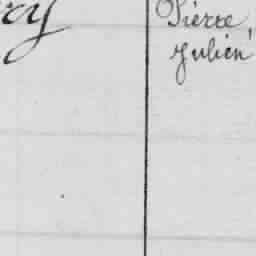 Pierre,
Julien